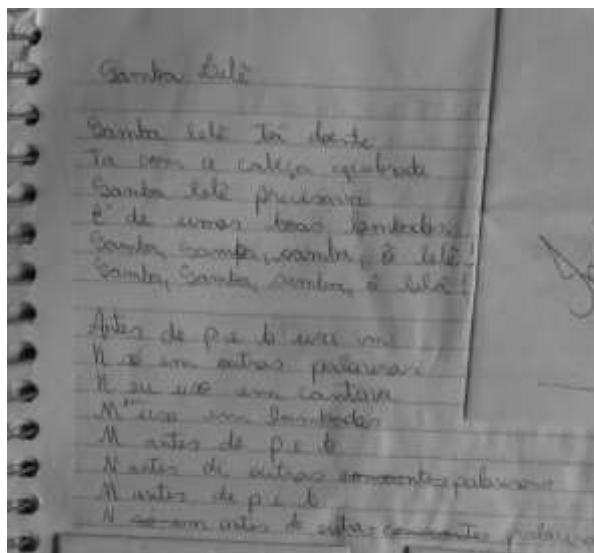 Samba Lelê
Samba Lelê Tá doente
Ta com a cabeça quebrada
Samba lelê precisava
É de umas boas lambadas
Samba, samba, samba, ô lelê!
Samba, Samba, samba, ô lelê!
Antes de p e b uso m
N só em outras palavras
N eu uso em cantava
M uso em lambadas
M antes de p e b
N antes de outras consoantes palavras
M antes de p e b
N só em antes de outras consoantes palavras